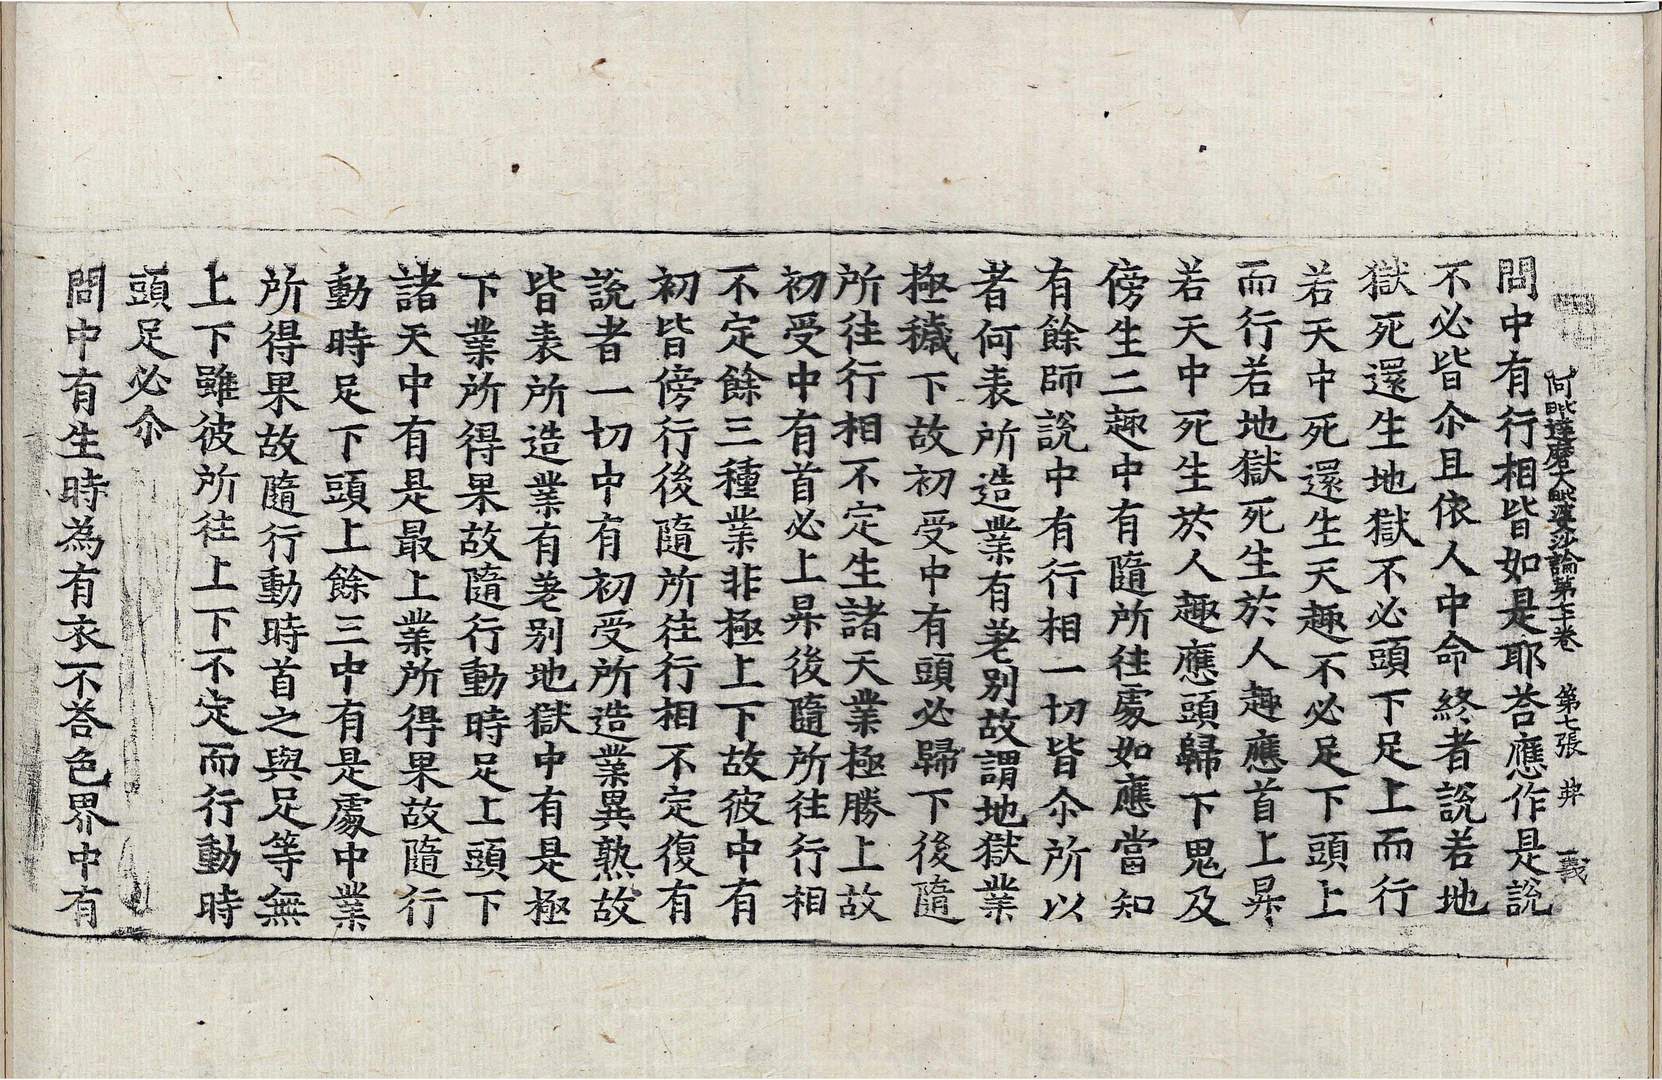 阿毗達磨大毗婆沙論第七十卷 第七張 弗 義
問中有行相皆如是耶荅應作是說
不必皆尒且依人中命終者說若地
獄死還生地獄不必頭下足上而行
若天中死還生天趣不必足下頭上
而行若地獄死生於人趣應首上昇
若天中死生於人趣應頭歸下鬼及
傍生二趣中有隨所往處如應當知
有餘師說中有行相一切皆尒所以
者何表所造業有差別故謂地獄業
極穢下故初受中有頭必歸下後隨
所往行相不定生諸天業極勝上故
初受中有首必上昇後隨所往行相
不定餘三種業非極上下故彼中有
初皆傍行後隨所往行相不定復有
說者一切中有初受所造業異熟故
皆表所造業有差別地獄中有是極
下業所得果故隨行動時足上頭下
諸天中有是最上業所得果故隨行
動時足下頭上餘三中有是處中業
所得果故隨行動時首之與足等無
上下雖彼所往上下不定而行動時
頭足必尒
問中有生時為有衣不荅色界中有